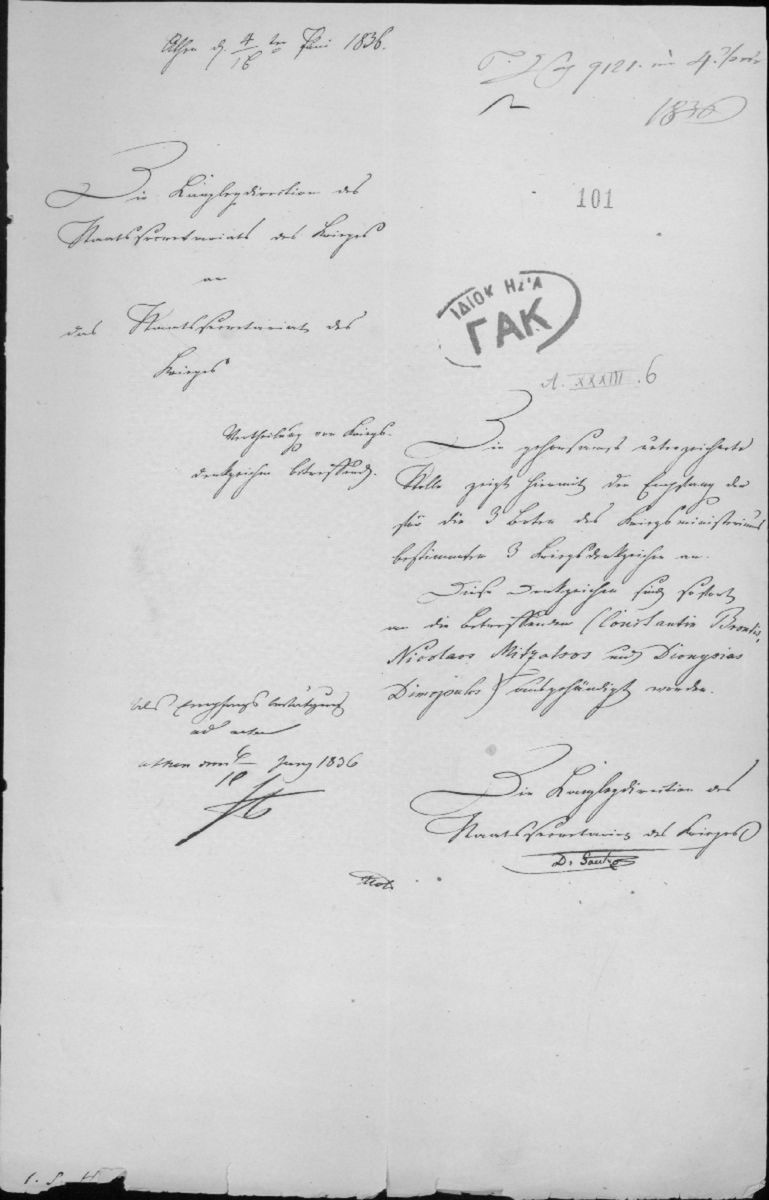 Athen d. 4/16 ten Juni 1836.
9121. 4.
1836
101
Die Kanzleydirection des
Staatssecretariats des Krieges
an
das Staatssecretariat des
Krieges
ΙΔΙΟΚΗΣΙΑ
ΓΑΚ
Α. XXXIII. 6
Vertheilung von Kriegs-
denkzeichen betreffend.
Die gehorsamst unterzeichnete
Stelle zeigt hiermit den Empfang der
für die 3 Boten des Kriegsministeriums
bestimmten 3 Kriegsdenkzeichen an.
Diese Denkzeichen sind sofort
an die Betreffenden (Constantin Brontis,
Nicolaos Mitzatsos und Dionysios
Dimopoulos) ausgehändigt worden.
Als Empfangsbestätigung
ad acta
Athen den 4/16 Juny 1836
Die Kanzleydirection des
Staatssecretariats des Krieges